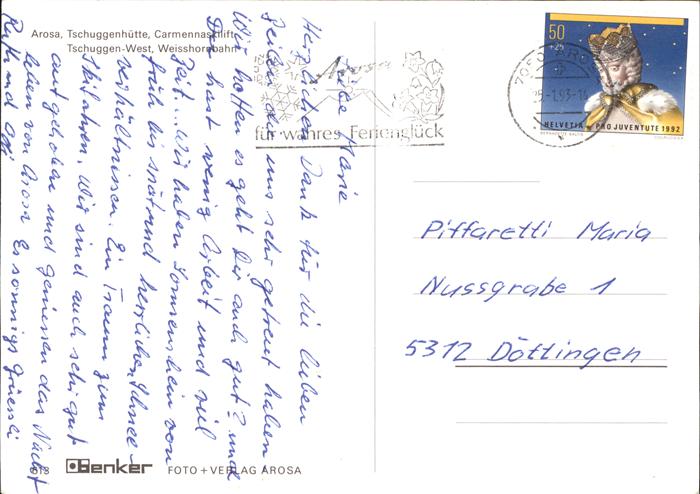 Arosa, Tschuggenhütte, Carmennaskilift
Tschuggen-West, Weisshornbahn
Arosa
für wahres Ferienglück
7050 AROSA
25-1.93-1
50
+25
HELVETIA PRO JUVENTUTE 1992
Liebe Marie
Herzlichen Dank für die lieben
Zeilen die uns sehr gefreut haben
Wir hoffen es geht Dir auch gut? und
Du hast wenig Arbeit und viel
Zeit... Wir haben Sonnenschein von
früh bis spät und herrliche Schnee-
verhältnissen. Ein Traum zum
Skifahren. Wir sind auch sehr gut
aufgehoben und geniessen das Nacht-
leben von Arosa Es sonnigs Grüessli
Ruth und
Piffaretti Maria
Nussgrabe 1
5312 Döttingen
613 Denker FOTO + VERLAG AROSA